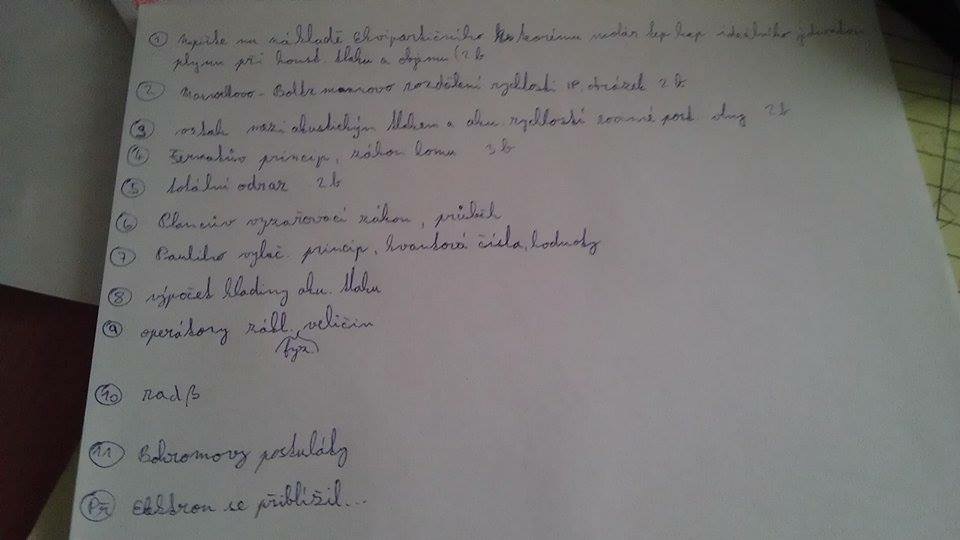 ① Napište na základě Ekvipartičního teorému molár tep kap ideálního
plynu při konst. tlaku a objemu (2 b
② Maxwellovo - Boltzmannovo rozdělení rychlosti IP, obrázek 2 b
③ vztah mezi akustickým tlakem a aku. rychlostí rovinné post. vlny 2 b
④ Fermatův princip, zákon lomu 3 b
⑤ totální odraz 2 b
⑥ Plancův vyzařovací zákon, průběh
⑦ Pauliho vyluč. princip, kvantová čísla, hodnoty
⑧ výpočet hladiny aku. tlaku
⑨ operátory zákl. veličin
fyz.
⑩ rad β
⑪ Bohromovy postuláty
Př Elektron se přiblížil...